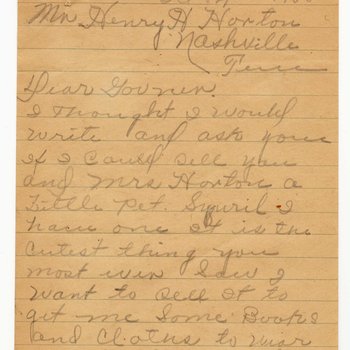 Mr Henry H Horton
Nashville
Tenn
Dear Govner.
I thought I would
write and ask you
if I Caud sell you
and Mrs Horton a
little Pet. Squril I
have one It is the
cutest thing you
most ever Saw I
want to sell It to
get me Some Books
and Cloths to wear